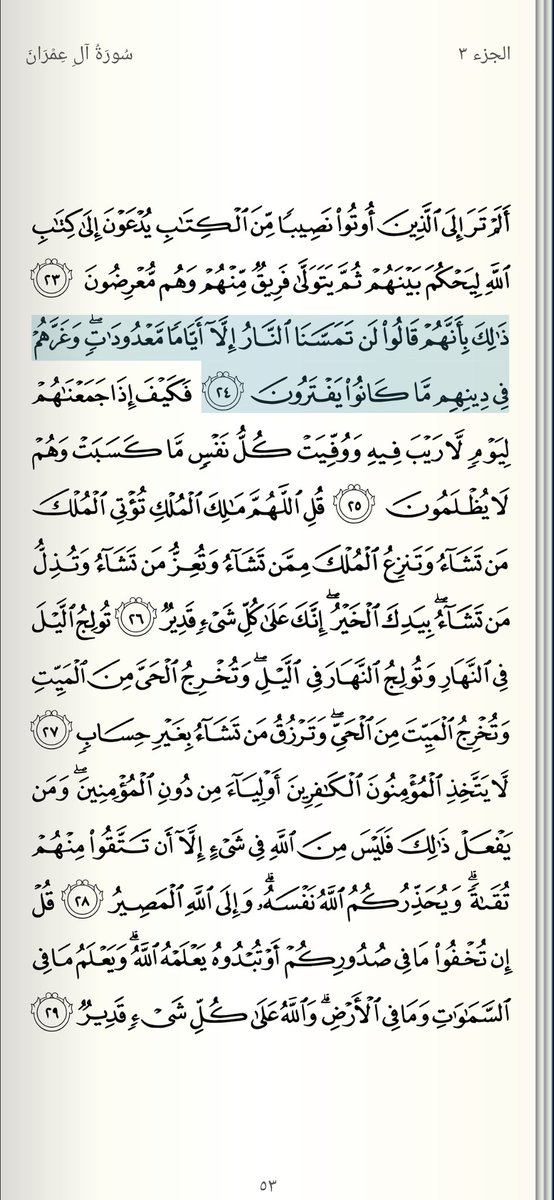 الجزء ٣ سُورَةُ آلِ عِمْرَانَ
أَلَمْ تَرَ إِلَى ٱلَّذِينَ أُوتُوا۟ نَصِيبًا مِّنَ ٱلْكِتَٰبِ يُدْعَوْنَ إِلَىٰ كِتَٰبِ
ٱللَّهِ لِيَحْكُمَ بَيْنَهُمْ ثُمَّ يَتَوَلَّىٰ فَرِيقٌ مِّنْهُمْ وَهُم مُّعْرِضُونَ ٢٣
ذَٰلِكَ بِأَنَّهُمْ قَالُوا۟ لَن تَمَسَّنَا ٱلنَّارُ إِلَّآ أَيَّامًا مَّعْدُودَٰتٍ ۖ وَغَرَّهُمْ
فِى دِينِهِم مَّا كَانُوا۟ يَفْتَرُونَ ٢٤ فَكَيْفَ إِذَا جَمَعْنَٰهُمْ
لِيَوْمٍ لَّا رَيْبَ فِيهِ وَوُفِّيَتْ كُلُّ نَفْسٍ مَّا كَسَبَتْ وَهُمْ
لَا يُظْلَمُونَ ٢٥ قُلِ ٱللَّهُمَّ مَٰلِكَ ٱلْمُلْكِ تُؤْتِى ٱلْمُلْكَ
مَن تَشَآءُ وَتَنزِعُ ٱلْمُلْكَ مِمَّن تَشَآءُ وَتُعِزُّ مَن تَشَآءُ وَتُذِلُّ
مَن تَشَآءُ ۖ بِيَدِكَ ٱلْخَيْرُ ۖ إِنَّكَ عَلَىٰ كُلِّ شَىْءٍ قَدِيرٌ ٢٦ تُولِجُ ٱلَّيْلَ
فِى ٱلنَّهَارِ وَتُولِجُ ٱلنَّهَارَ فِى ٱلَّيْلِ ۖ وَتُخْرِجُ ٱلْحَىَّ مِنَ ٱلْمَيِّتِ
وَتُخْرِجُ ٱلْمَيِّتَ مِنَ ٱلْحَىِّ ۖ وَتَرْزُقُ مَن تَشَآءُ بِغَيْرِ حِسَابٍ ٢٧
لَّا يَتَّخِذِ ٱلْمُؤْمِنُونَ ٱلْكَٰفِرِينَ أَوْلِيَآءَ مِن دُونِ ٱلْمُؤْمِنِينَ ۖ وَمَن
يَفْعَلْ ذَٰلِكَ فَلَيْسَ مِنَ ٱللَّهِ فِى شَىْءٍ إِلَّآ أَن تَتَّقُوا۟ مِنْهُمْ
تُقَىٰةً ۗ وَيُحَذِّرُكُمُ ٱللَّهُ نَفْسَهُۥ ۗ وَإِلَى ٱللَّهِ ٱلْمَصِيرُ ٢٨ قُلْ
إِن تُخْفُوا۟ مَا فِى صُدُورِكُمْ أَوْ تُبْدُوهُ يَعْلَمْهُ ٱللَّهُ ۗ وَيَعْلَمُ مَا فِى
ٱلسَّمَٰوَٰتِ وَمَا فِى ٱلْأَرْضِ ۗ وَٱللَّهُ عَلَىٰ كُلِّ شَىْءٍ قَدِيرٌ ٢٩
٥٣